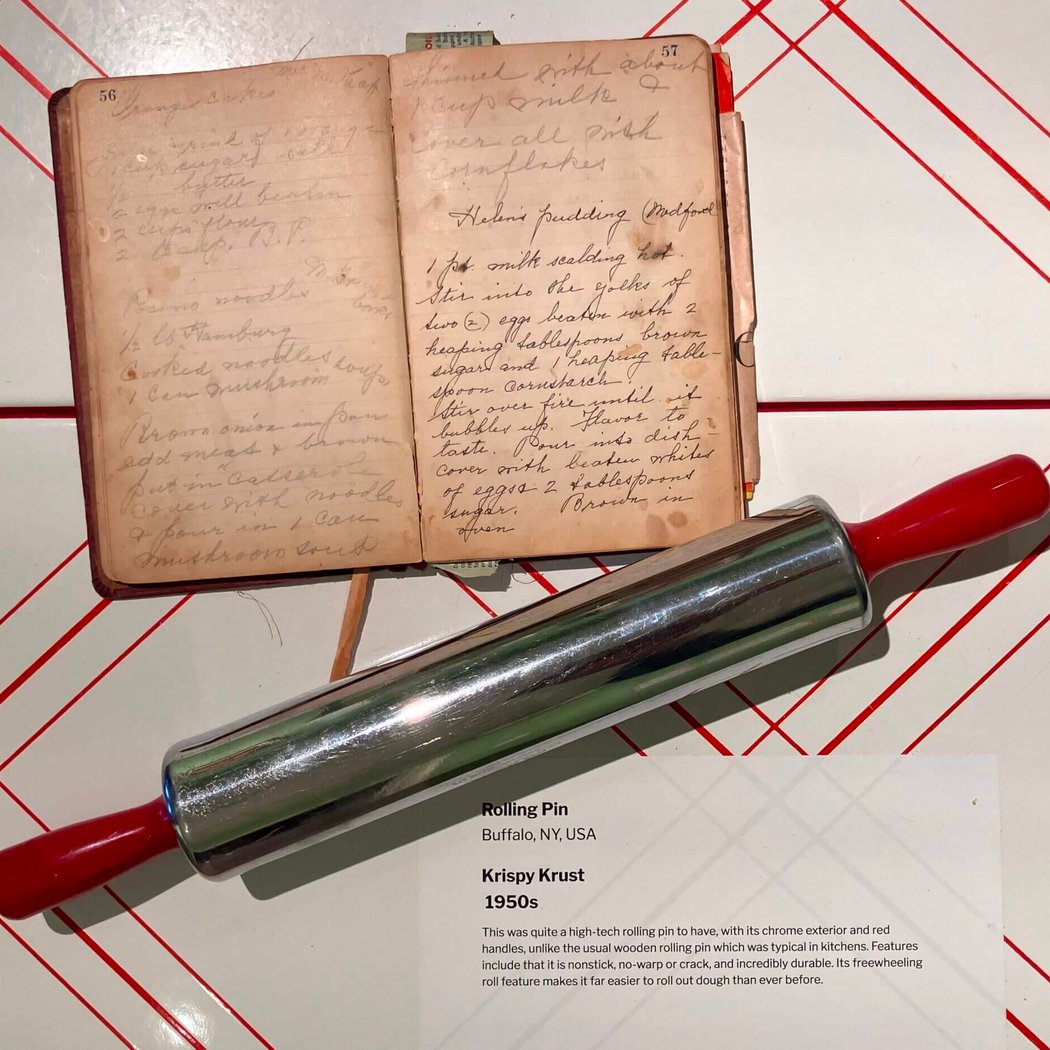 56
Orange Cakes
1 cup sugar
butter
2 eggs well beaten
2 cups flour
2 teasp. B.P.
noodles
1/2 lb Hamburg
Cooked noodles
1 Can mushroom soup
Brown onion in pan
add meat & brown
put in casserole
cover with noodles
& pour in 1 can
mushroom soup
57
thinned with about
1 cup milk &
cover all with
cornflakes
Helen's pudding (Medford
1 pt. milk scalding hot.
Stir into the yolks of
two (2) eggs beaten with 2
heaping tablespoons brown
sugar and 1 heaping table-
spoon cornstarch.
Stir over fire until it
bubbles up. Flavor to
taste. Pour into dish -
cover with beaten whites
of eggs & 2 tablespoons
sugar. Brown in
oven
Rolling Pin
Buffalo, NY, USA
Krispy Krust
1950s
This was quite a high-tech rolling pin to have, with its chrome exterior and red
handles, unlike the usual wooden rolling pin which was typical in kitchens. Features
include that it is nonstick, no-warp or crack, and incredibly durable. Its freewheeling
roll feature makes it far easier to roll out dough than ever before.